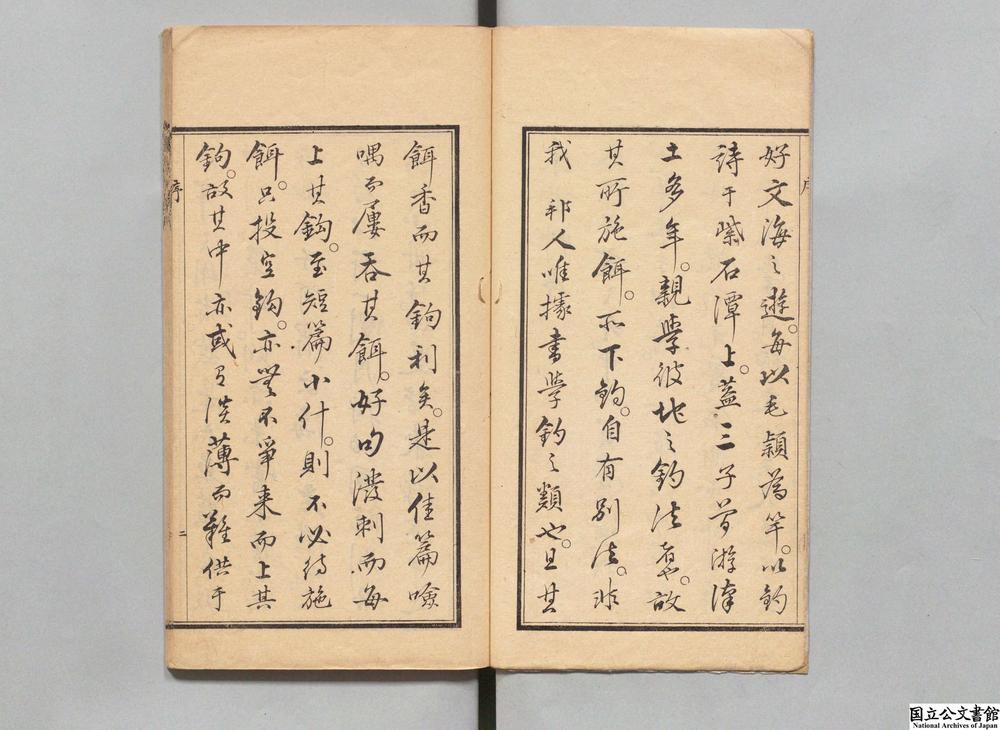 好文海之遊。每以毛穎為竿。以釣
詩于紫石潭上。蓋三子曾游漢
土多年。親學彼地之釣法耄。故
其所施餌。所下鈎。自有別法。非
我邦人唯據書學釣之類也。且其
餌香而其鈎利矣。是以佳篇噞
喁而屢吞其餌。好句潑刺而每
上其鈎。至短篇小什。則不必待施
餌。只投空鈎。亦無不爭來而上其
鈎。故其中亦或有淡薄而難供于
序
序
二
国立公文書館
National Archives of Japan